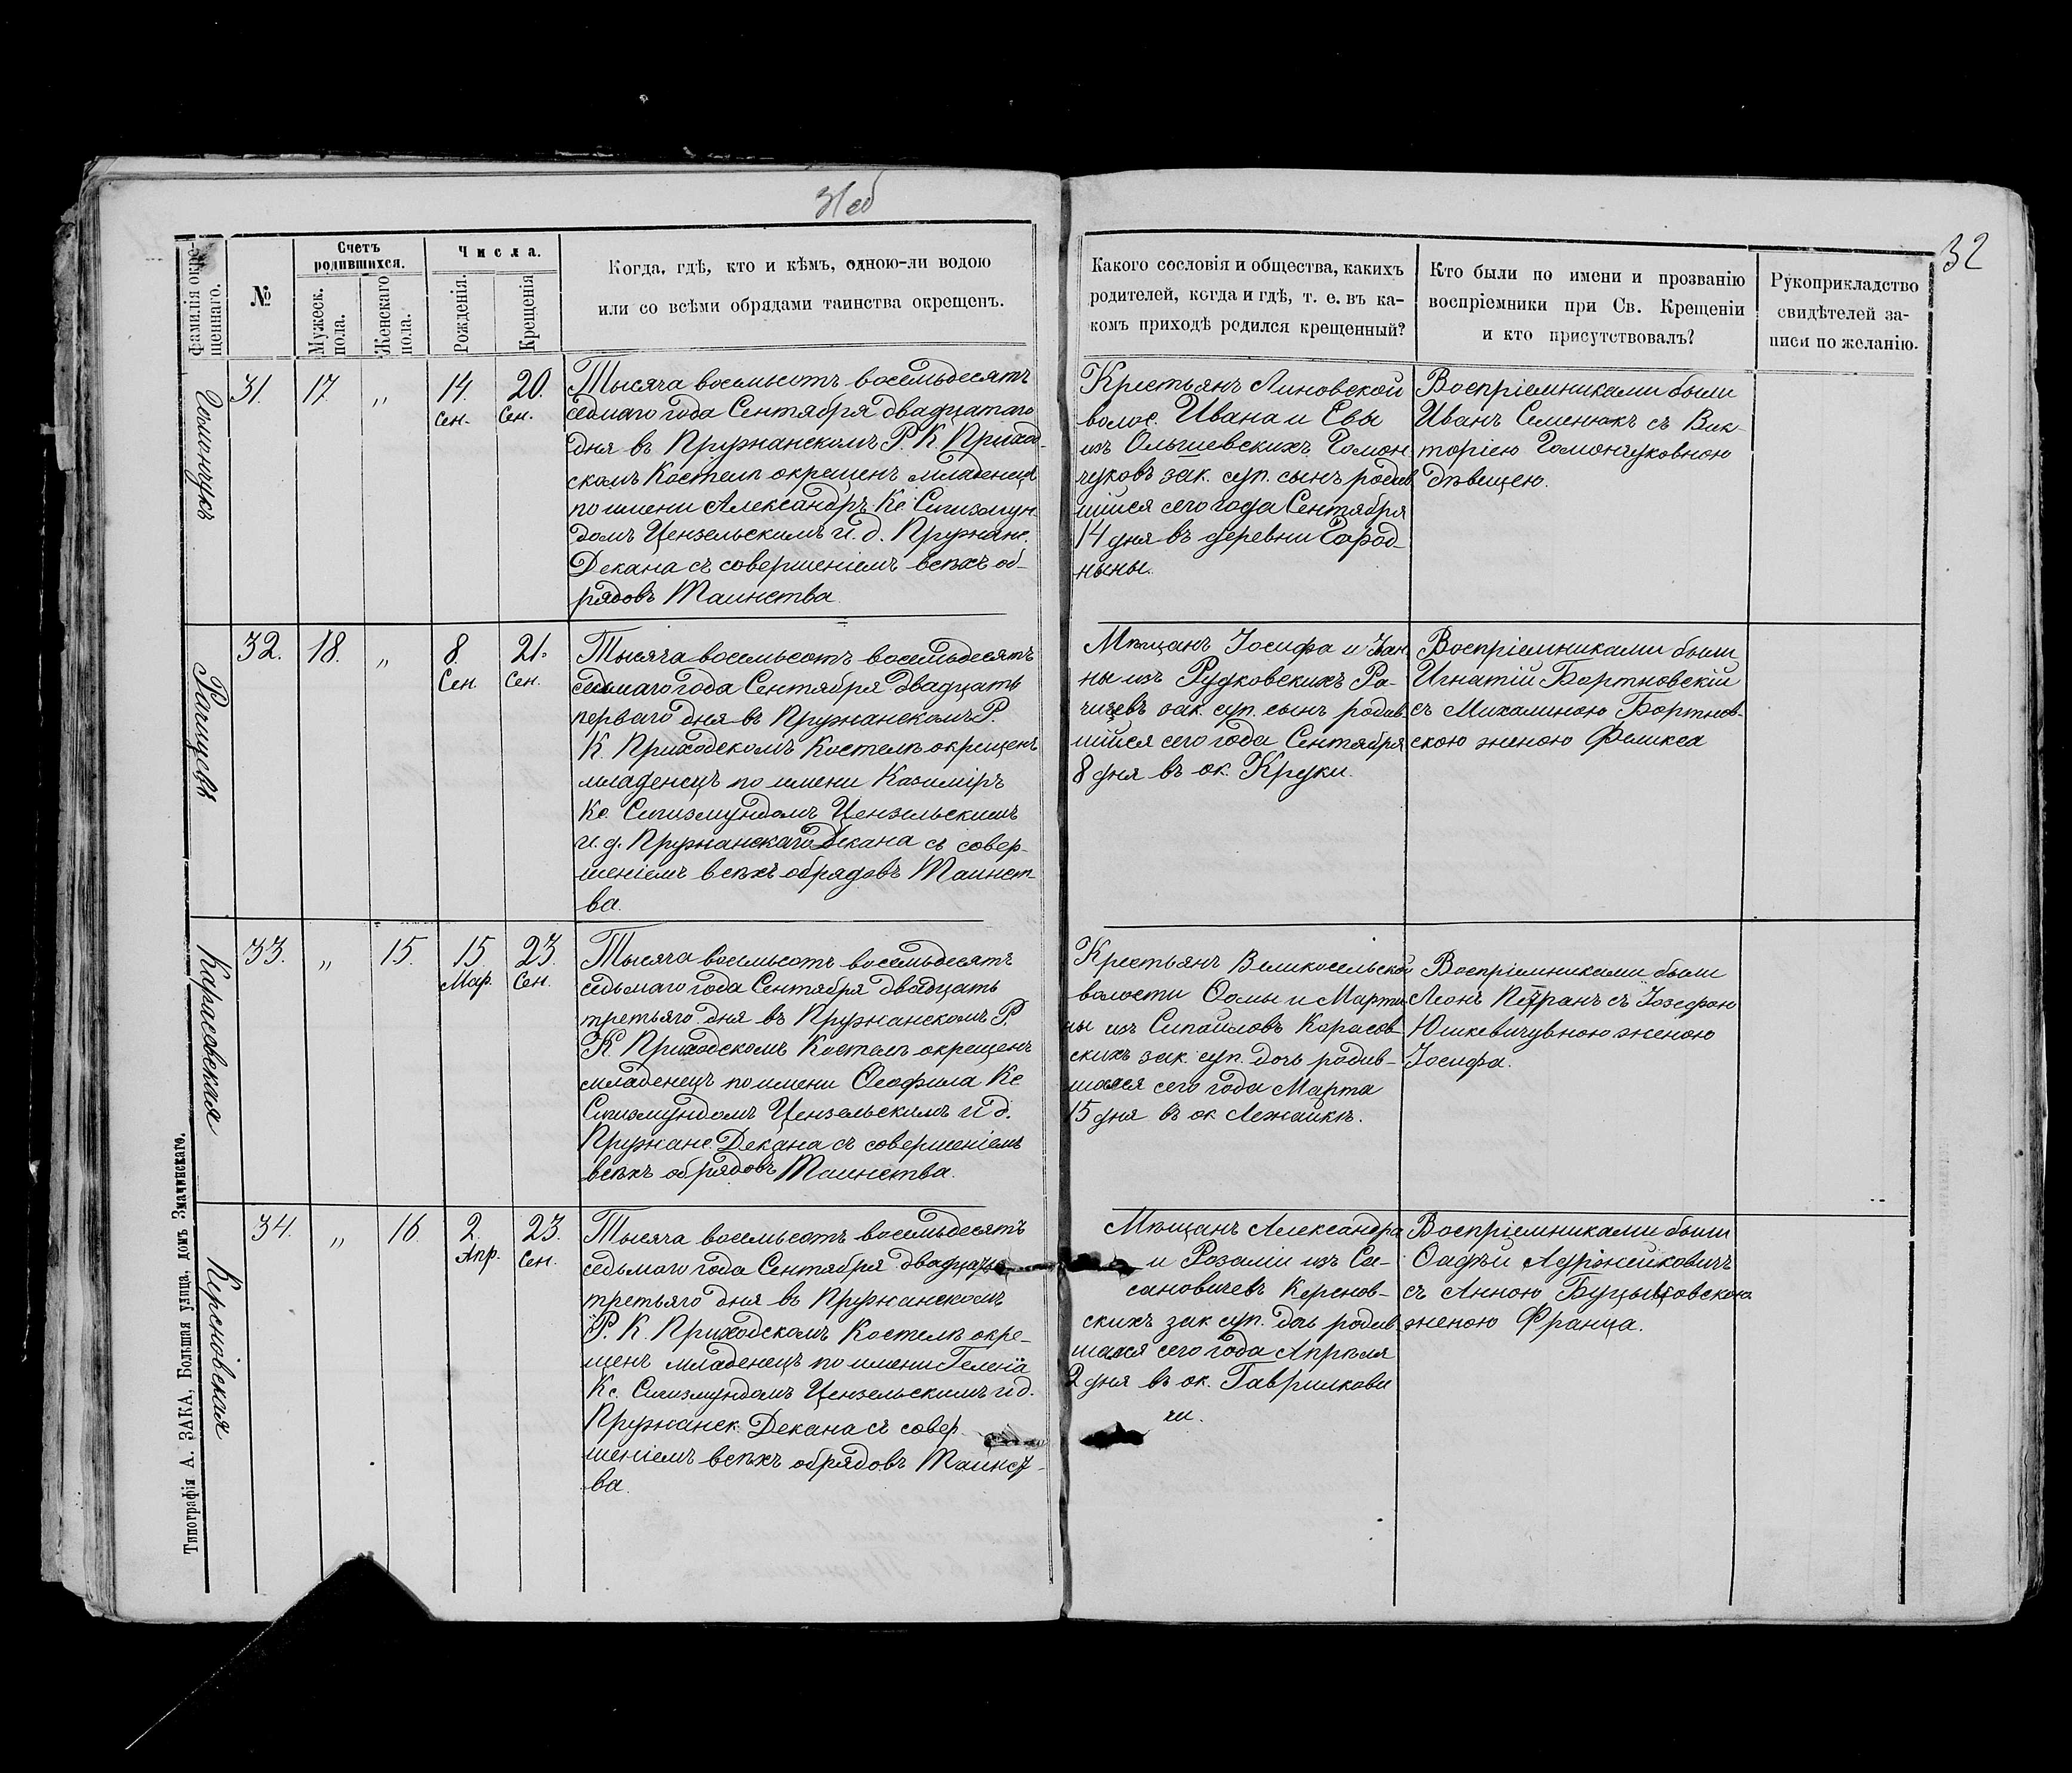 31 об
32
Фамилія окре-
щеннаго.
№
Счетъ
родившихся.
Мужеск.
пола.
Женскаго
пола.
Числа.
Рожденія.
Крещенія
Когда, гдѣ, кто и кѣмъ, одною-ли водою
или со всѣми обрядами таинства окрещенъ.
Какого сословія и общества, какихъ
родителей, когда и гдѣ, т. е. въ ка-
комъ приходѣ родился крещенный?
Кто были по имени и прозванію
воспріемники при Св. Крещеніи
и кто присутствовалъ?
Рукоприкладство
свидѣтелей за-
писи по желанію.
Гомончукъ
31.
17.
„
14.
Сен.
20.
Сен.
Тысяча восемьсотъ восемьдесятъ
седмаго года Сентября двадцатаго
дня въ Пружанскомъ Р. К. Приход-
скомъ Костелѣ окрещенъ младенецъ
по имени Александръ Кс. Сигизмун-
домъ Цензельскимъ и. д. Пружанс.
Декана съ совершеніемъ всѣхъ об-
рядовъ Таинства.
Крестьянъ Линовской
волос. Ивана и Евы
изъ Ольшевскихъ Гомон
чуковъ зак. суп. сынъ родив
шійся сего года Сентября
14 дня въ деревни Город-
ныны.
Воспріемниками были
Иванъ Семенюкъ съ Вик-
торіею Гомончуковною
дѣвицею.
Рачицевъ
32.
18.
„
8.
Сен.
21.
Сен.
Тысяча восемьсотъ восемьдесятъ
седьмаго года Сентября двадцать
перваго дня въ Пружанскомъ Р.
К. Приходскомъ Костелѣ окрещенъ
младенецъ по имени Казиміръ
Кс. Сигизмундомъ Цензельскимъ
и. д. Пружанскаго Декана съ совер-
шеніемъ всѣхъ обрядовъ Таинст-
ва.
Мѣщанъ Іосифа и Іан
ны изъ Рудковскихъ Ра-
чицевъ зак. суп. сынъ родив
шійся сего года Сентября
8 дня въ ок. Круки.
Воспріемниками были
Игнатій Бортновскій
съ Михалиною Бортнов-
скою женою Феликса
Карасевская
33.
„
15.
15.
Мар.
23.
Сен.
Тысяча восемьсотъ восемьдесятъ
седьмаго года Сентября двадцать
третьяго дня въ Пружанскомъ Р.
К. Приходскомъ Костелѣ окрещенъ
младенецъ по имени Ѳеофила Кс
Сигизмундомъ Цензельскимъ и д.
Пружанс. Декана съ совершеніемъ
всѣхъ обрядовъ Таинства.
Крестьянъ Великосельской
волости Ѳомы и Марти
ны изъ Сипайловъ Карасев-
скихъ зак. суп. дочь родив-
шаяся сего года Марта
15 дня въ ок Лежайкѣ.
Воспріемниками были
Леонъ съ Іозефою
Юшкевичувною женою
Іосифа.
Керсновская
34.
„
16
2.
Апр.
23.
Сен.
Тысяча восемьсотъ восемьдесятъ
седьмаго года Сентября двадцать
третьяго дня въ Пружанскомъ
Р. К. Приходскомъ Костелѣ окре-
щенъ младенецъ по имени Геленіа
Кс. Сигизмундомъ Цензельскимъ и д.
Пружанск. Декана съ совер
шеніемъ всѣхъ обрядовъ Таинст-
ва.
Мѣщанъ Александра
и Розаліи изъ Са-
сановичевъ Керснов-
скихъ зак суп. дочь родив
шаяся сего года Апрѣля
2 дня въ ок. Гаврилкови
чи.
Воспріемниками были
Ѳадѣй
съ Анною
женою Франца.
Типографія А. ЗАКА, Большая улица, домъ Змачинскаго.